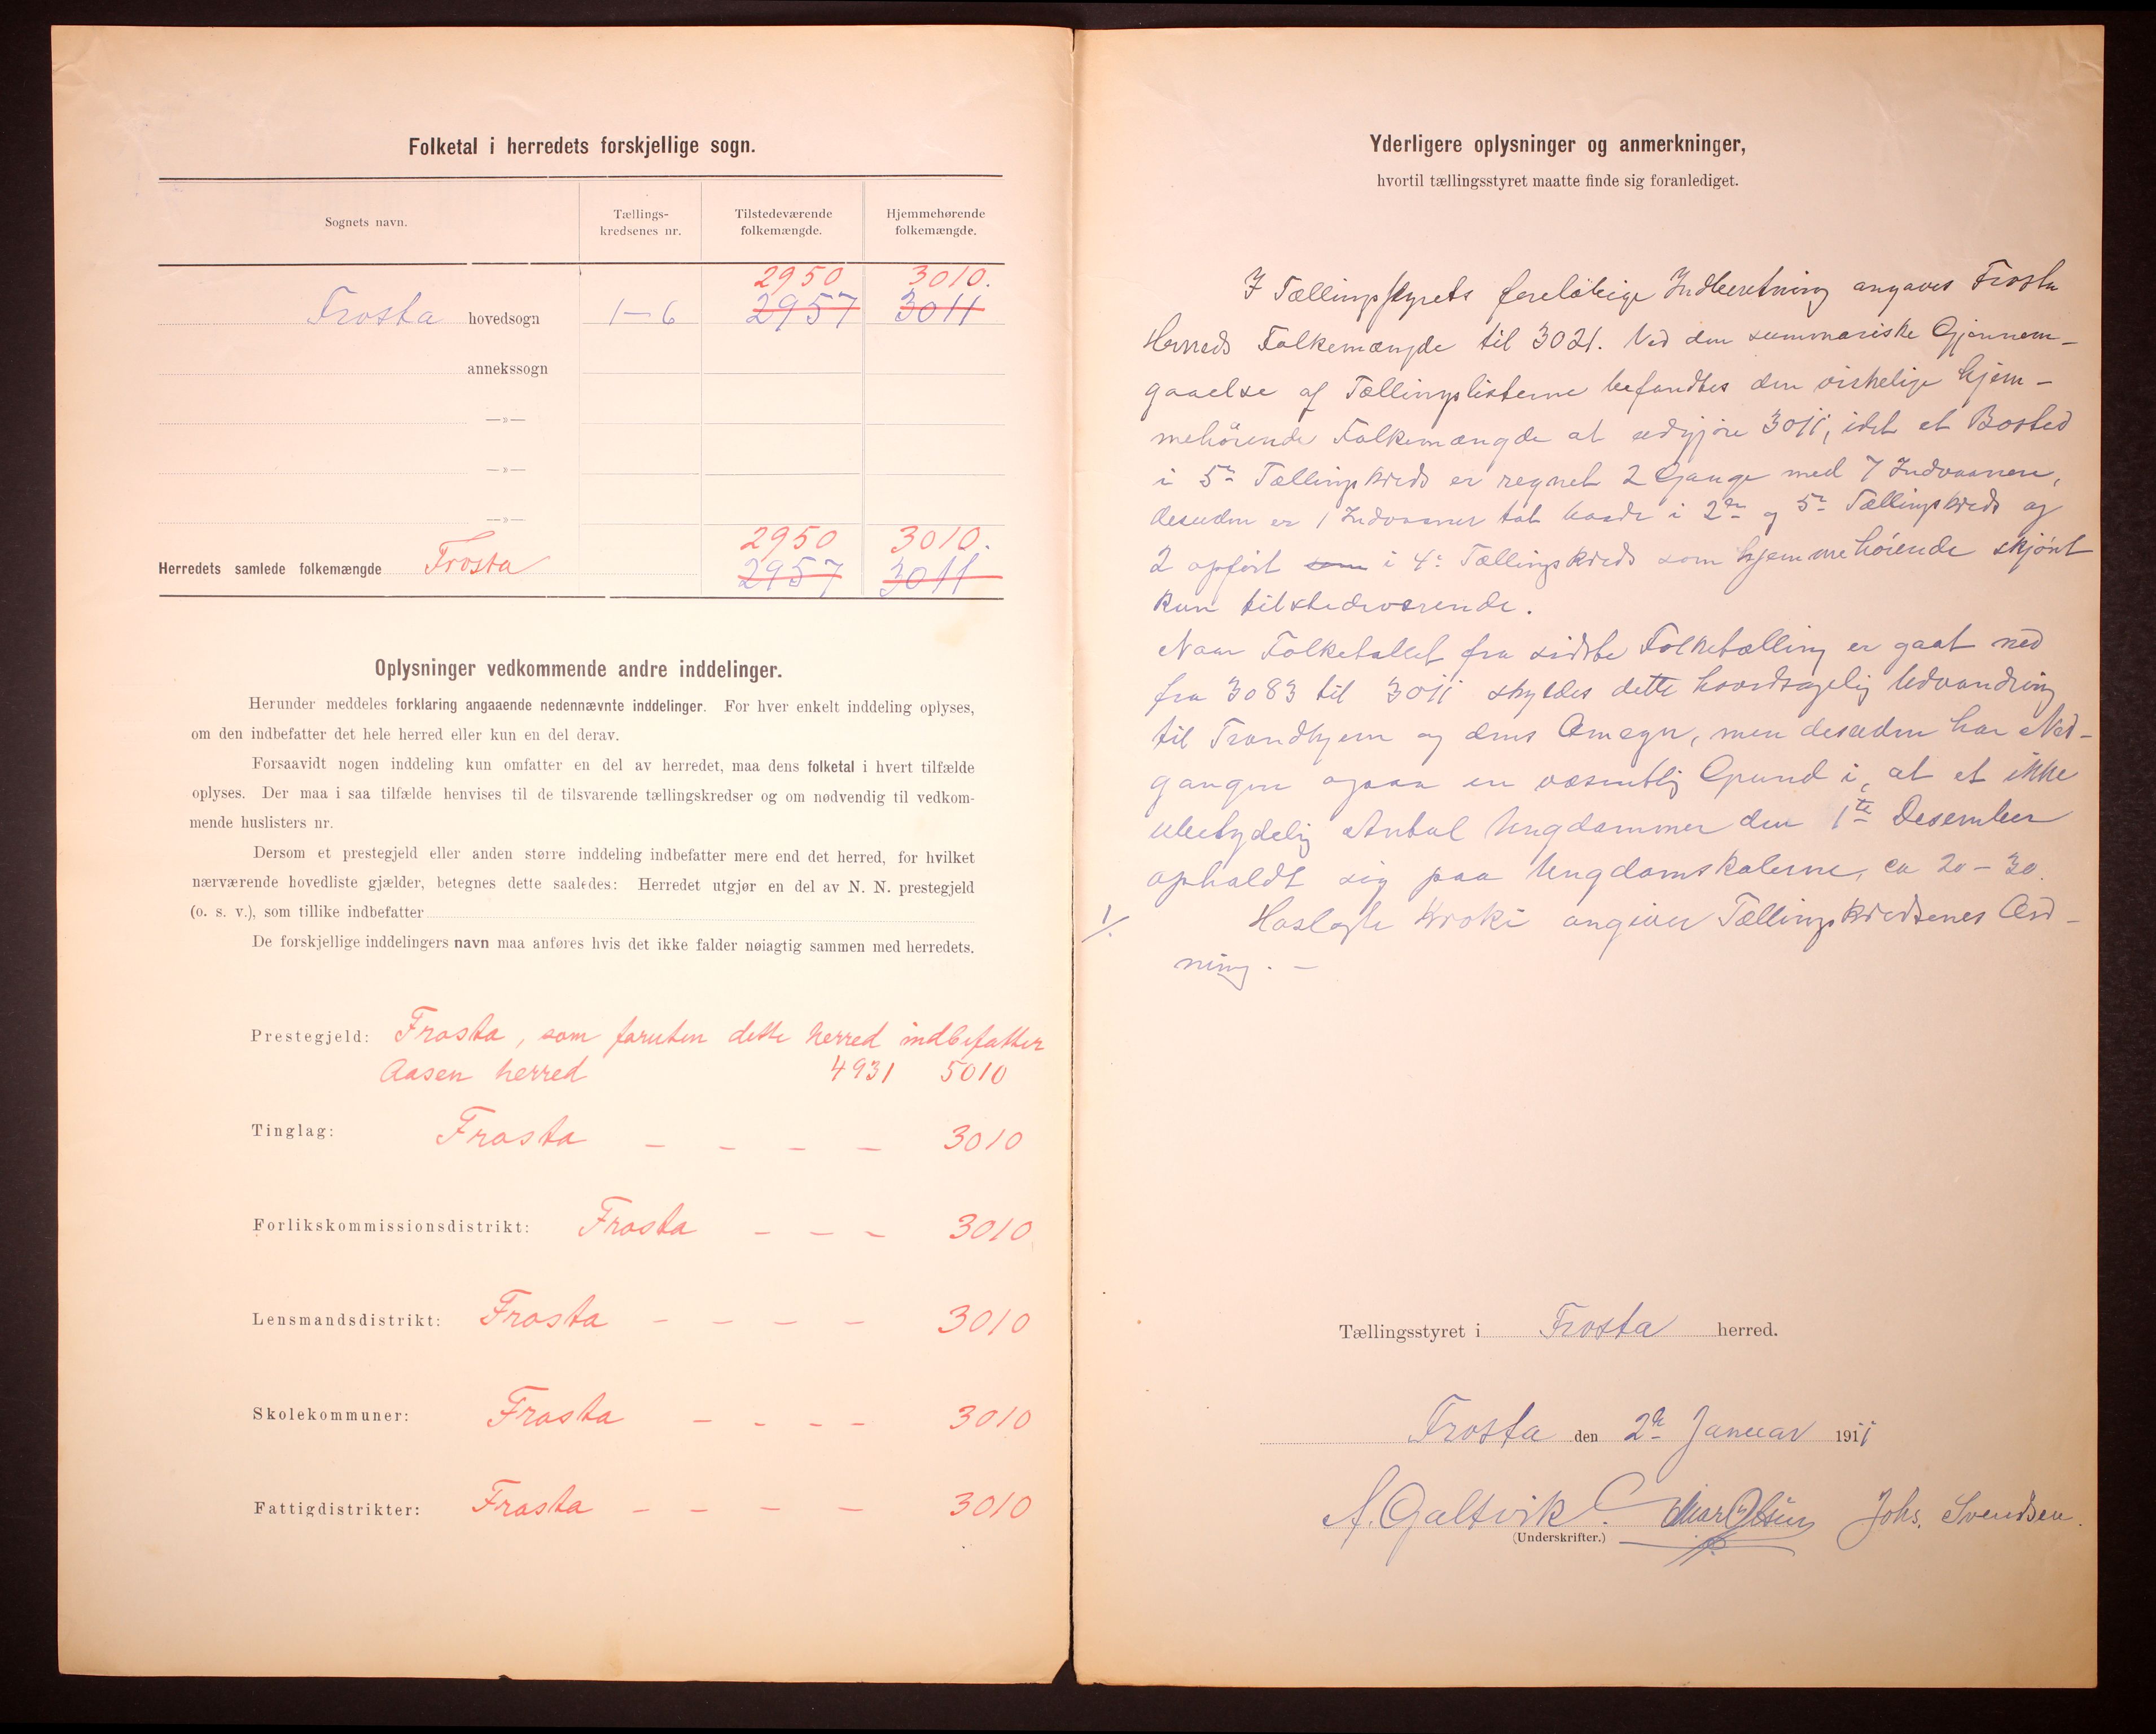 Folketal i herredets forskjellige sogn.
Sognets navn.
Tællings-
kredsenes nr.
Tilstedeværende
folkemængde.
Hjemmehørende
folkemængde.
2950 3010.
Frosta hovedsogn 1–6 2957 3011
annekssogn
—»—
—»—
—»—
2950 3010.
Herredets samlede folkemængde Frosta 2957 3011
Oplysninger vedkommende andre inddelinger.
Herunder meddeles forklaring angaaende nedennævnte inddelinger. For hver enkelt inddeling oplyses,
om den indbefatter det hele herred eller kun en del derav.
Forsaavidt nogen inddeling kun omfatter en del av herredet, maa dens folketal i hvert tilfælde
oplyses. Der maa i saa tilfælde henvises til de tilsvarende tællingskredser og om nødvendig til vedkom-
mende huslisters nr.
Dersom et prestegjeld eller anden større inddeling indbefatter mere end det herred, for hvilket
nærværende hovedliste gjælder, betegnes dette saaledes: Herredet utgjør en del av N. N. prestegjeld
(o. s. v.), som tillike indbefatter
De forskjellige inddelingers navn maa anføres hvis det ikke falder nøiagtig sammen med herredets.
Prestegjeld: Frosta, som foruten dette herred indbefatter
Aasen herred 4931 5010
Tinglag: Frosta – – – – 3010
Forlikskommissionsdistrikt: Frosta – – – 3010
Lensmandsdistrikt: Frosta – – – – 3010
Skolekommuner: Frosta – – – – 3010
Fattigdistrikter: Frosta – – – – 3010
Yderligere oplysninger og anmerkninger,
hvortil tællingsstyret maatte finde sig foranlediget.
I Tællingsstyrets foreløbige Indberetning angaves Frosta
Herreds Folkemængde til 3021. Ved den summariske Gjennem-
gaaelse af Tællingslisterne befandtes den virkelige hjem-
mehörende Folkemængde at udgjøre 3011, idet et Bosted
i 5te Tællingskreds er regnet 2 Gange med 7 Indvaanere,
desuden er 1 Indvaaner tat baade i 2den og 5te Tællingskreds og
2 opført som i 4: Tællingskreds som hjemmehörende skjönt
kun tilstedeværende.
Naar Folketallet fra sidste Folketælling er gaat ned
fra 3083 til 3011 skyldes dette hovedsagelig Udvandring
til Trondhjem og dens Omegn, men desuden har Ned-
gangen ogsaa en væsentlig Grund i, at et ikke
ubetydelig Antal Ungdommer den 1te Desember
opholdt sig paa Ungdomskolerne, ca 20-30.
1/. Hoslagte Kroki angiver Tællingskredsenes Ord-
ning. –
Tællingsstyret i Frosta herred.
Frosta den 2de Januar 1911
A. Galtvik. Olsen Johs. Svendsen.
(Underskrifter.)